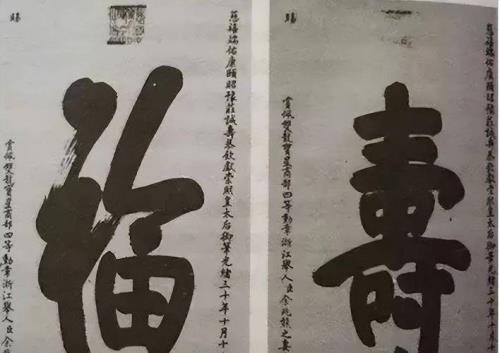 慈禧端佑康頤昭豫莊誠壽恭欽獻崇熙皇太后御筆光緒三十年十月十
壽
賜
賞佩雙龍寶星商部四等勳章浙江舉人臣余兆熊之妻
慈禧端佑康頤昭豫莊誠壽恭欽獻崇熙皇太后御筆光緒三十年十月十
福
賜
賞佩雙龍寶星商部四等勳章浙江舉人臣余兆熊